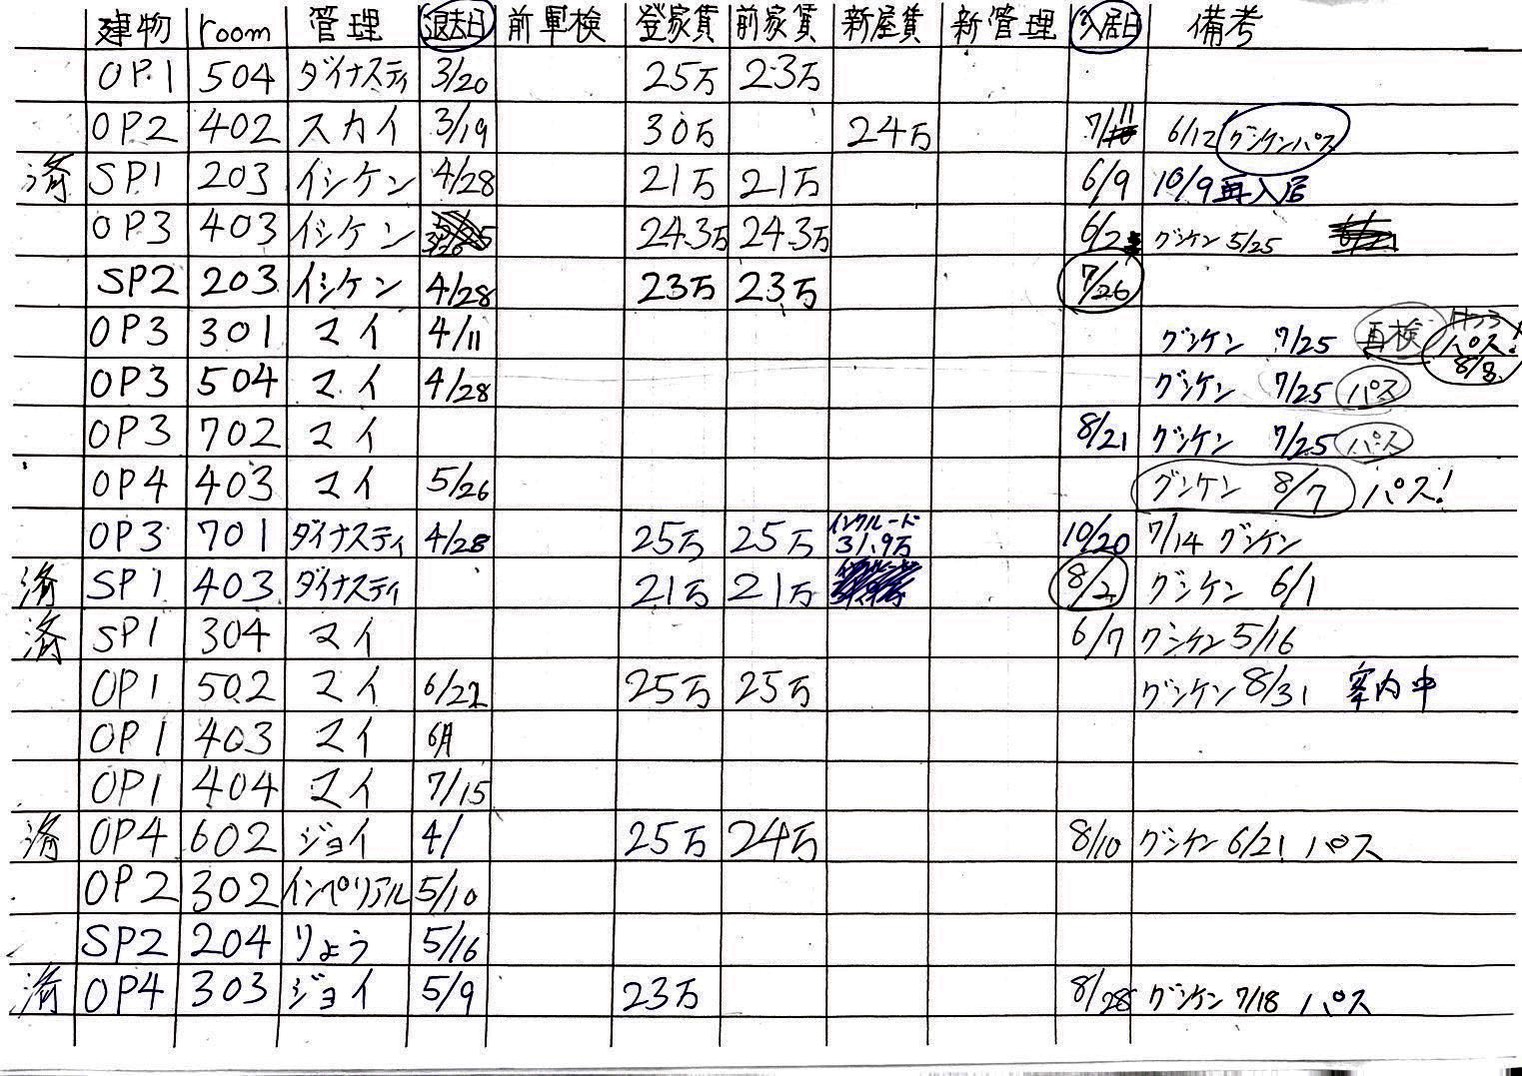 建物 room 管理 退去日 前軍検 登家賃 前家賃 新屋賃 新管理 入居日 備考
OP.1 504 ダイナスティ 3/20 25万 23万
OP2 402 スカイ 3/19 30万 24万 7/11 6/12 グシケンパス
済 SP.1 203 イシケン 4/28 21万 21万 6/9 10/9再入居
OP3 403 イシケン 24.3万 24.3万 6/2 グシケン 5/25
SP2 203 イシケン 4/28 23万 23万 7/26
OP3 301 マイ 4/11 グシケン 7/25 再検 パス! 8/8
OP3 504 マイ 4/28 グシケン 7/25 パス
OP3 702 マイ 8/21 グシケン 7/25 パス
OP4 403 マイ 5/26 グシケン 8/7 パス!
OP3 701 ダイナスティ 4/28 25万 25万 インクルード 31.9万 10/20 7/14 グシケン
済 SP1 403 ダイナスティ 21万 21万 8/2 グシケン 6/1
済 SP1 304 マイ 6/7 グシケン 5/16
OP1 502 マイ 6/22 25万 25万 グシケン 8/31 案内中
OP1 403 マイ 6月
OP1 404 マイ 7/15
済 OP4 602 ジョイ 4/ 25万 24万 8/10 グシケン 6/21 パス
OP2 302 インペリアル 5/10
SP2 204 りょう 5/16
済 OP4 303 ジョイ 5/9 23万 8/28 グシケン 7/18 パス